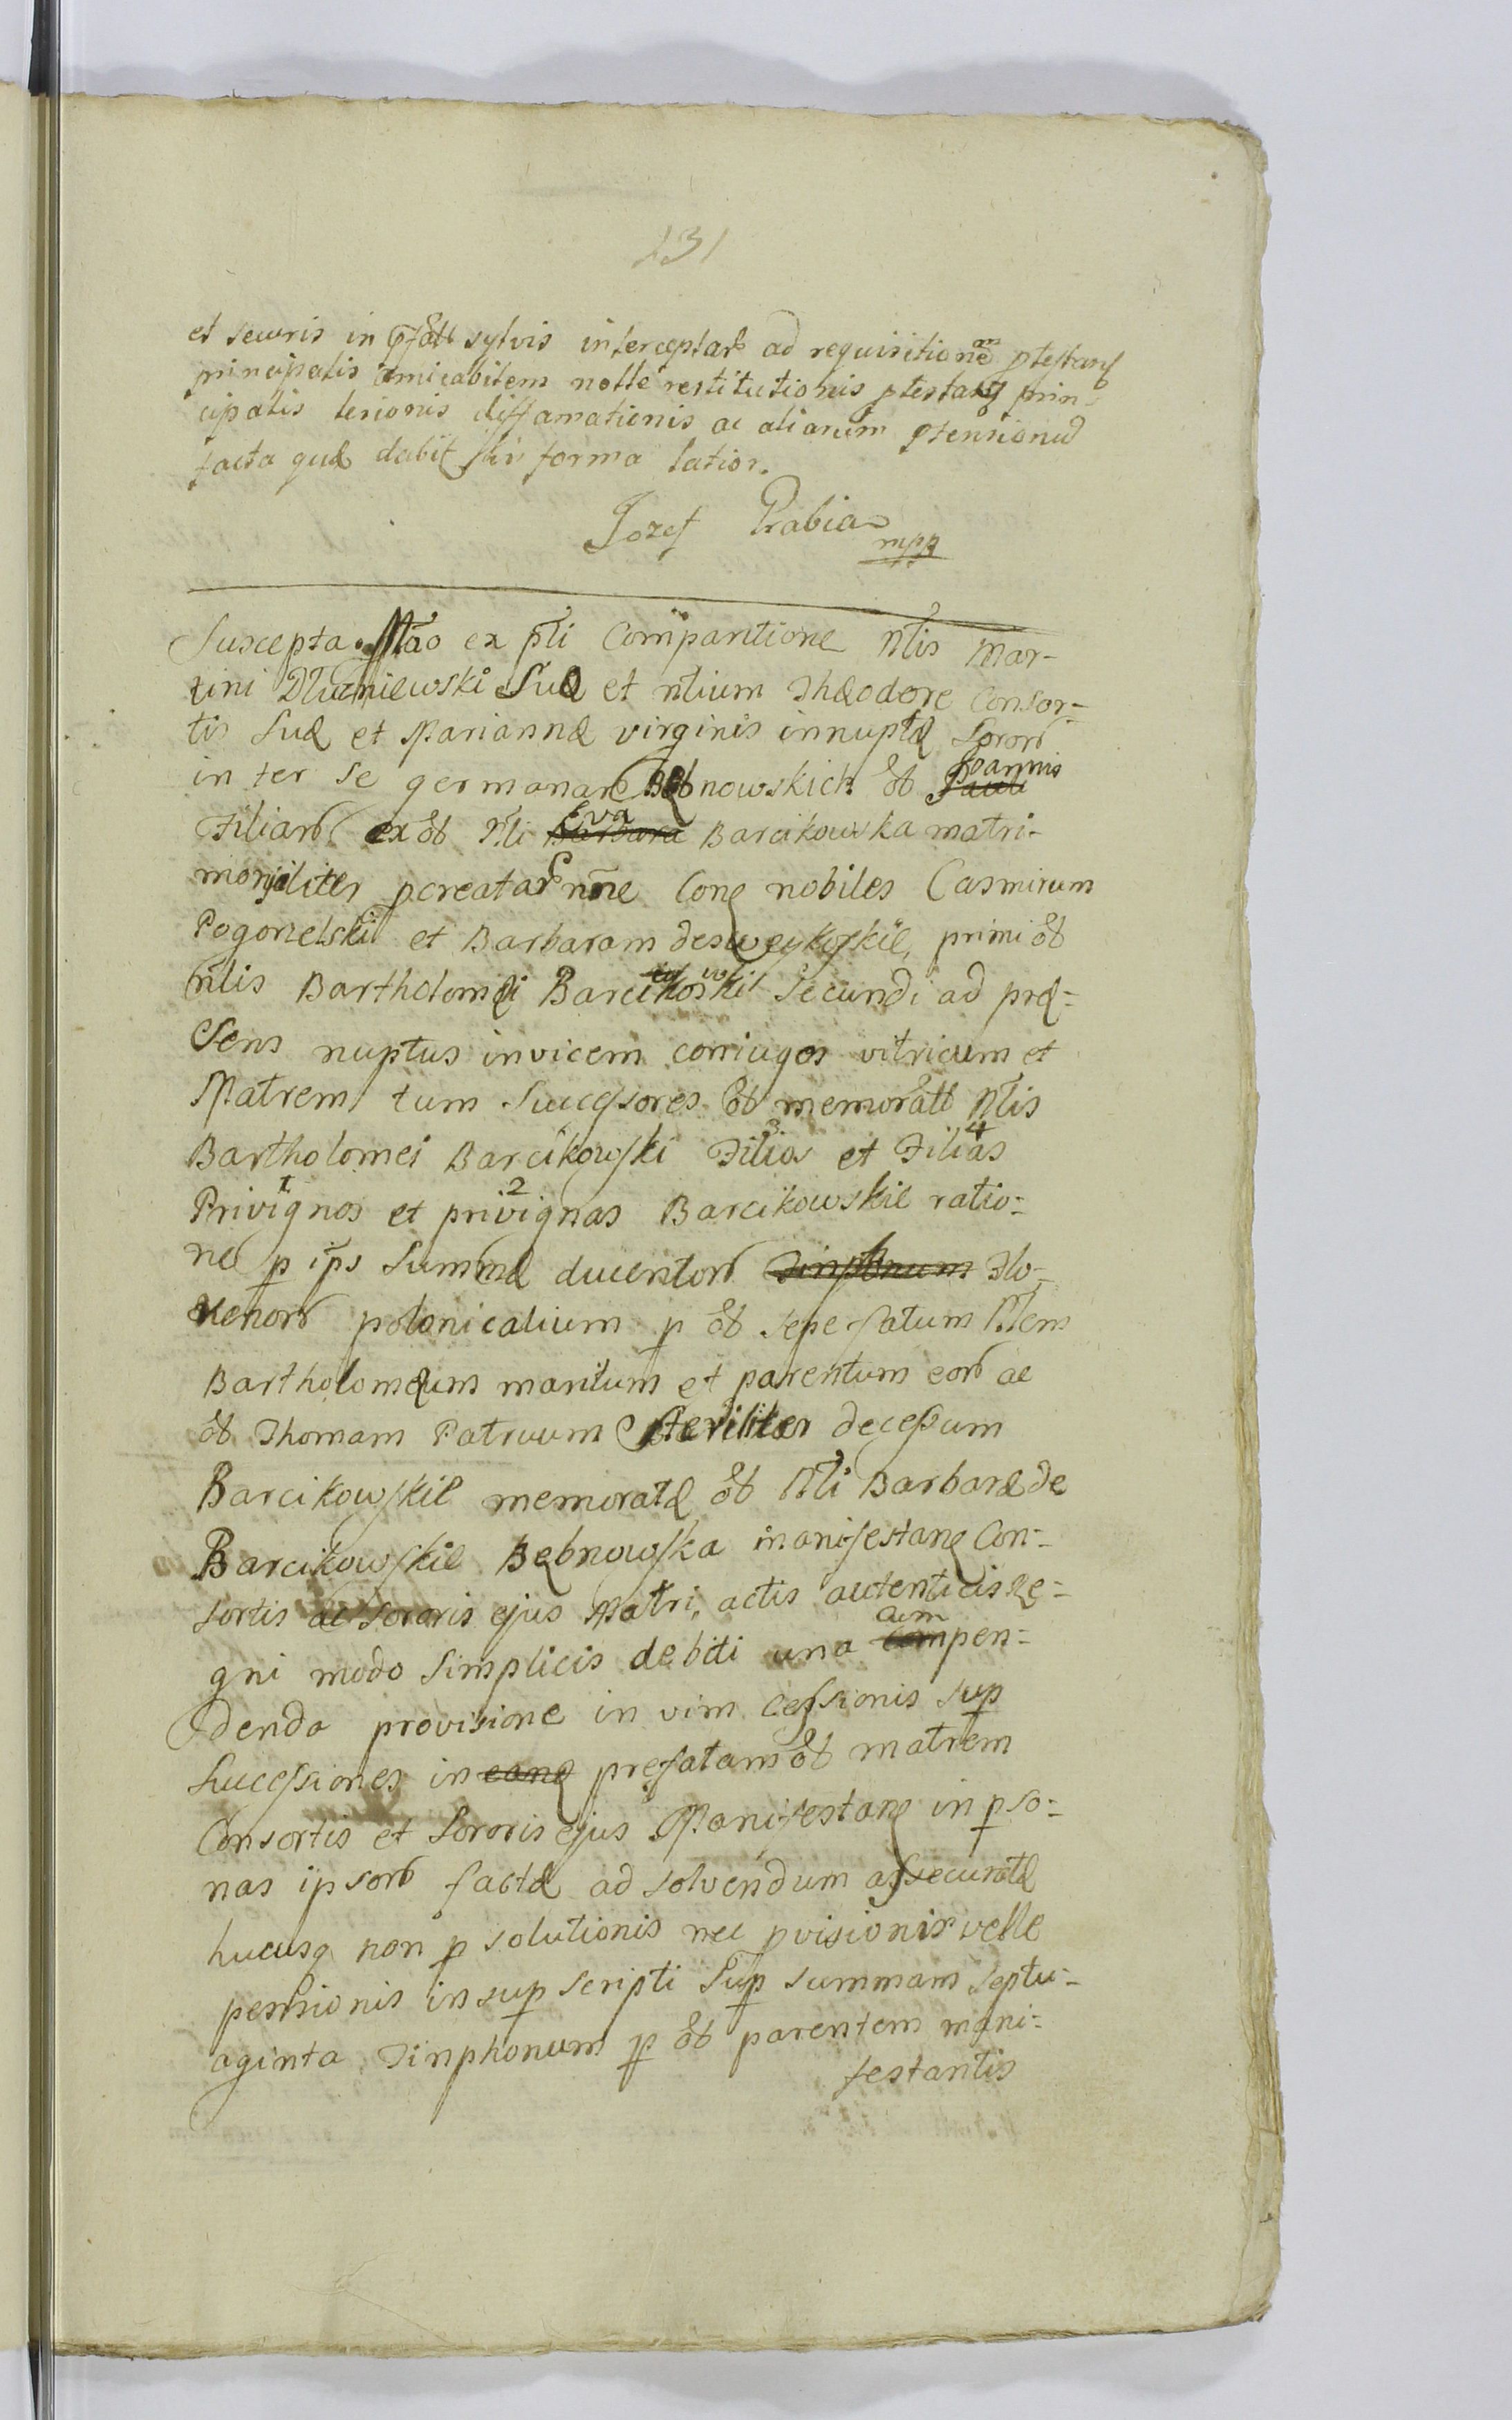 131
et securis in pfatt sylvis interceptarb ad requisitionem ptestang
principalis amicabilem nolle restitutionis ptestang prin-
cipalis lesionis diffamationis ac aliarum ptensionu
facta quæ dabit in forma latior.
Jozef Grabia mpp
Suscepta Mtāo ex pti Comparitione Ntis Mar-
tini Dłuzniewski Suæ et ntium Theodore Consor-
tis Suæ et Mariannæ virginis innuptæ Sororb
inter se germanarb Bębnowskich ob Joannis
Filiarb ex ob Nti Eva Barcikowska matri-
monialiter pcreatarb nōne Cone nobiles Casmirum
Pogorzelski et Barbaram de primi ob
ntis Bartholomæi Barcikowskie Secundi ad præ-
sens nuptus invicem coniuges vitricum et
Matrem tum Successores ob memoratt Ntis
Bartholomei Barcikowski Filios 3 et Filias 4
Privignos 1 et privignas 2 Barcikowskie ratio-
ne p ips Summæ ducentorb Tinphonum Flo-
renorb polonicalium p ob sepe fatum Ntem
Bartholomæum maritum et parentum eorb ac
ob Thomam Patruum steriliter decessum
Barcikowskie memoratæ ob Nti Barbaræ de
Barcikowskie Bębnowska manifestane Con-
sortis ac Sororis ejus Matri, actis autenticis Re-
gni modo Simplicis debiti una cum pen-
denda provisione in vim cessionis sup
Successiones in eane prefatam ob matrem
Consortis et Sororis ejus Manifestane in pso-
nas ipsorb factæ ad solvendum assecuratæ
hucusq non p solutionis nec pvisionis velle
pensionis insup scripti Sup summam septu-
aginta Tinphonum p ob parentem mani-
festantis